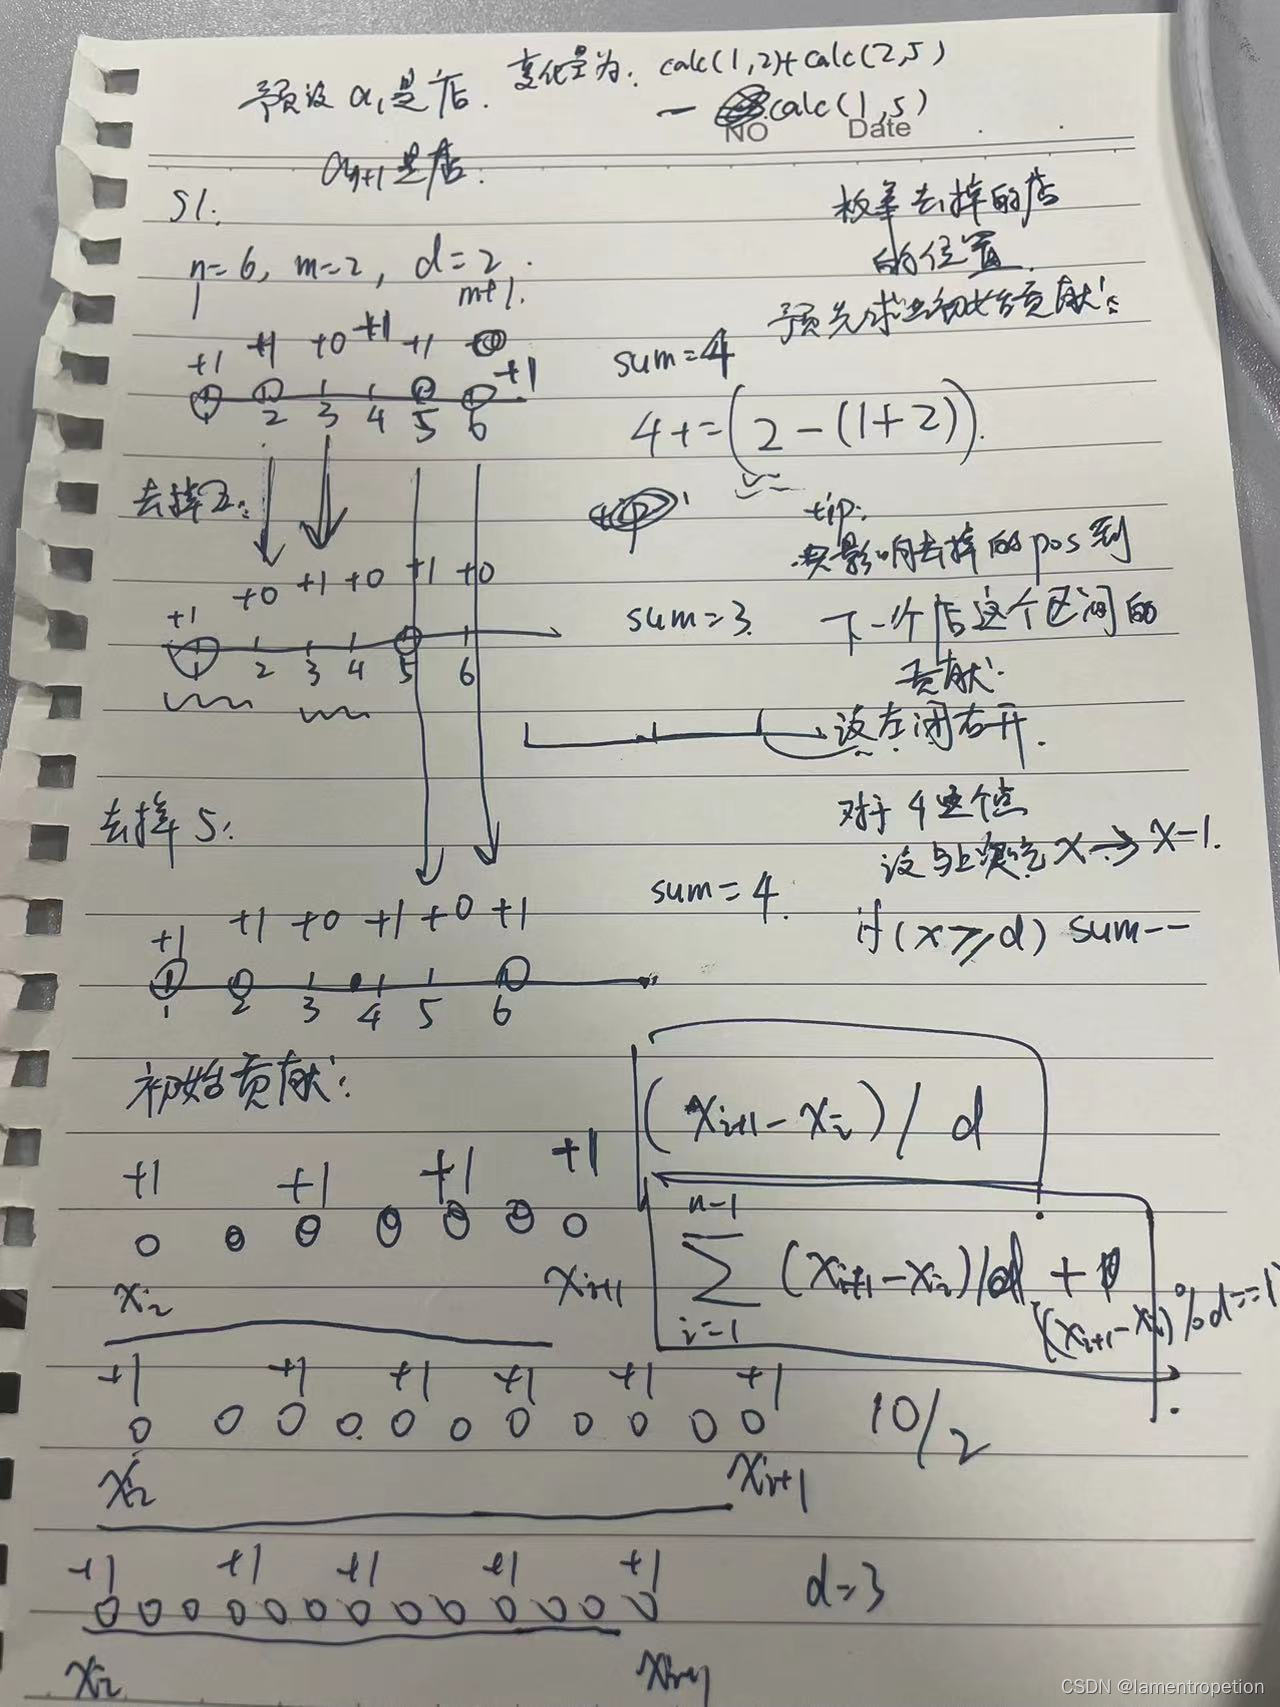 预设 a₁是店. 变化量为: calc(1,2)+calc(2,5)
- calc(1,5)
NO Date
aₙ₊₁是店.
S1:
n=6, m=2, d=2.
1 m+1.
枚举去掉的店
的位置.
预先求出初始贡献:
+1 +1 +0 +1 +1 +1
1 2 3 4 5 6
sum=4
4+=(2-(1+2)).
去掉2:
tip:
只影响去掉的pos到
下一个店这个区间的
贡献.
设左闭右开.
+1 +0 +1 +0 +1 +0
1 2 3 4 5 6
sum=3.
去掉5:
对于4这个点
x→x-1.
if(x≥d) sum--
+1 +1 +0 +1 +0 +1
1 2 3 4 5 6
sum=4.
初始贡献:
(xᵢ₊₁-xᵢ)/d
+1 +1 +1 +1
xᵢ xᵢ₊₁
n-1
∑ (xᵢ₊₁-xᵢ)/d +
i=1
((xᵢ₊₁-xᵢ)%d==1)
+1 +1 +1 +1 +1 +1
xᵢ xᵢ₊₁
10/2
+1 +1 +1 +1 +1
d=3
xᵢ xᵢ₊₁
CSDN @lamentropetion